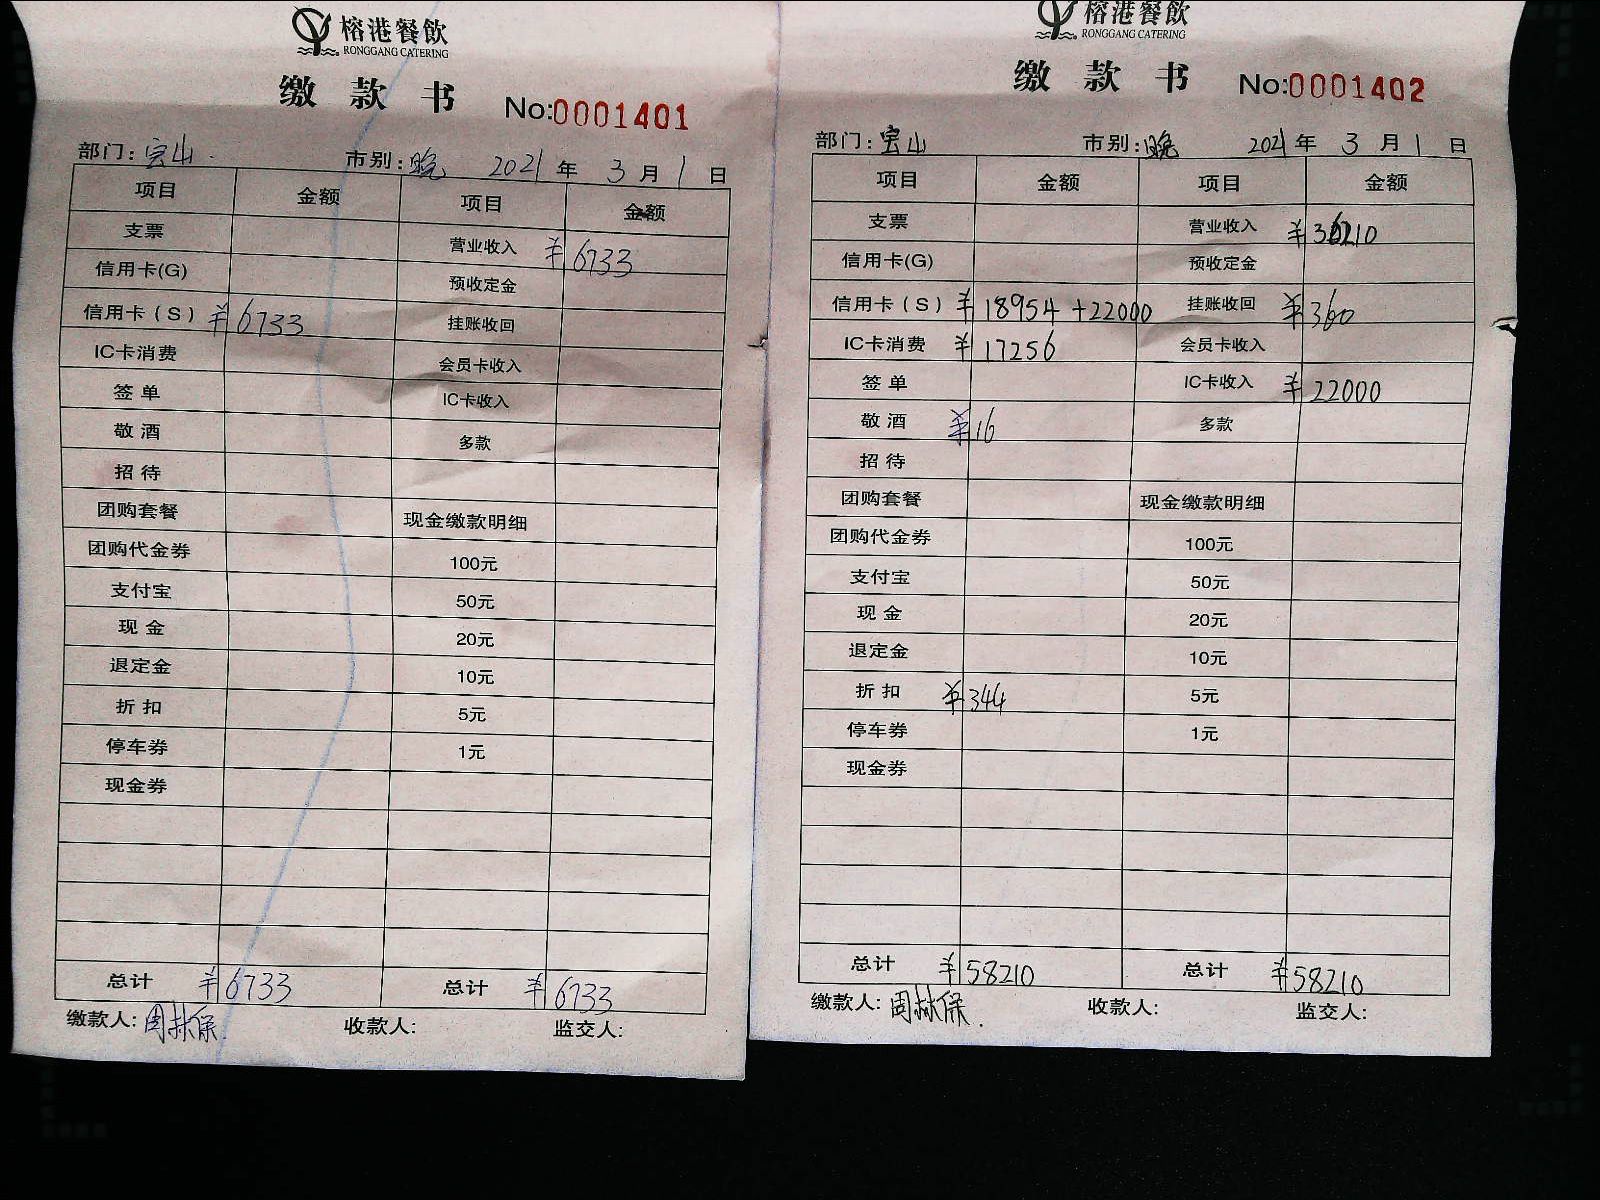 榕港餐飲
RONGGANG CATERING
缴款书 No:0001401
部门:宝山. 市别:晚 2021年3月1日
项目 金额 项目 金额
支票 营业收入 ¥6733
信用卡(G) 预收定金
信用卡(S) ¥6733 挂账收回
IC卡消费 会员卡收入
签单 IC卡收入
敬酒 多款
招待
团购套餐 现金缴款明细
团购代金券 100元
支付宝 50元
现金 20元
退定金 10元
折扣 5元
停车券 1元
现金券
总计 ¥6733 总计 ¥6733
缴款人:周林保. 收款人: 监交人:
榕港餐飲
RONGGANG CATERING
缴款书 No:0001402
部门:宝山 市别:晚 2021年3月1日
项目 金额 项目 金额
支票 营业收入 ¥
信用卡(G) 预收定金
信用卡(S) ¥18954+22000 挂账收回 ¥360
IC卡消费 ¥17256 会员卡收入
签单 IC卡收入 ¥22000
敬酒 ¥16 多款
招待
团购套餐 现金缴款明细
团购代金券 100元
支付宝 50元
现金 20元
退定金 10元
折扣 ¥344 5元
停车券 1元
现金券
总计 ¥58210 总计 ¥58210
缴款人:周林保. 收款人: 监交人: